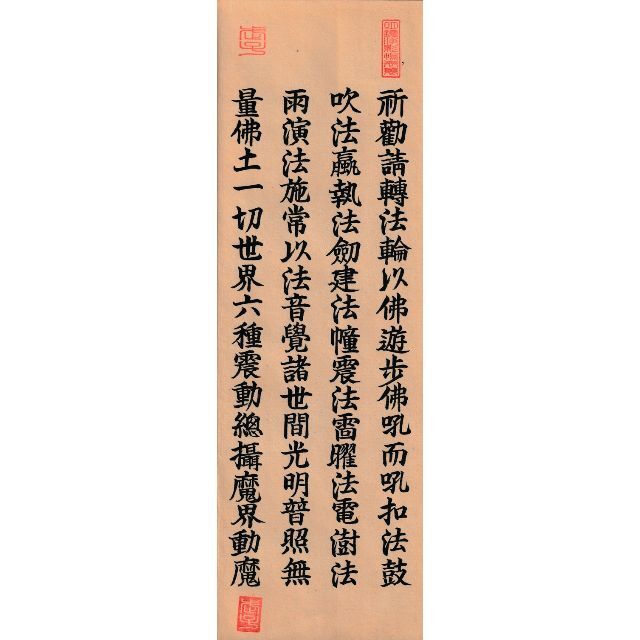 祈勸請轉法輪以佛遊步佛吼而吼扣法鼓
吹法蠃執法劒建法幢震法雷曜法電澍法
雨演法施常以法音覺諸世間光明普照無
量佛土一切世界六種震動總攝魔界動魔